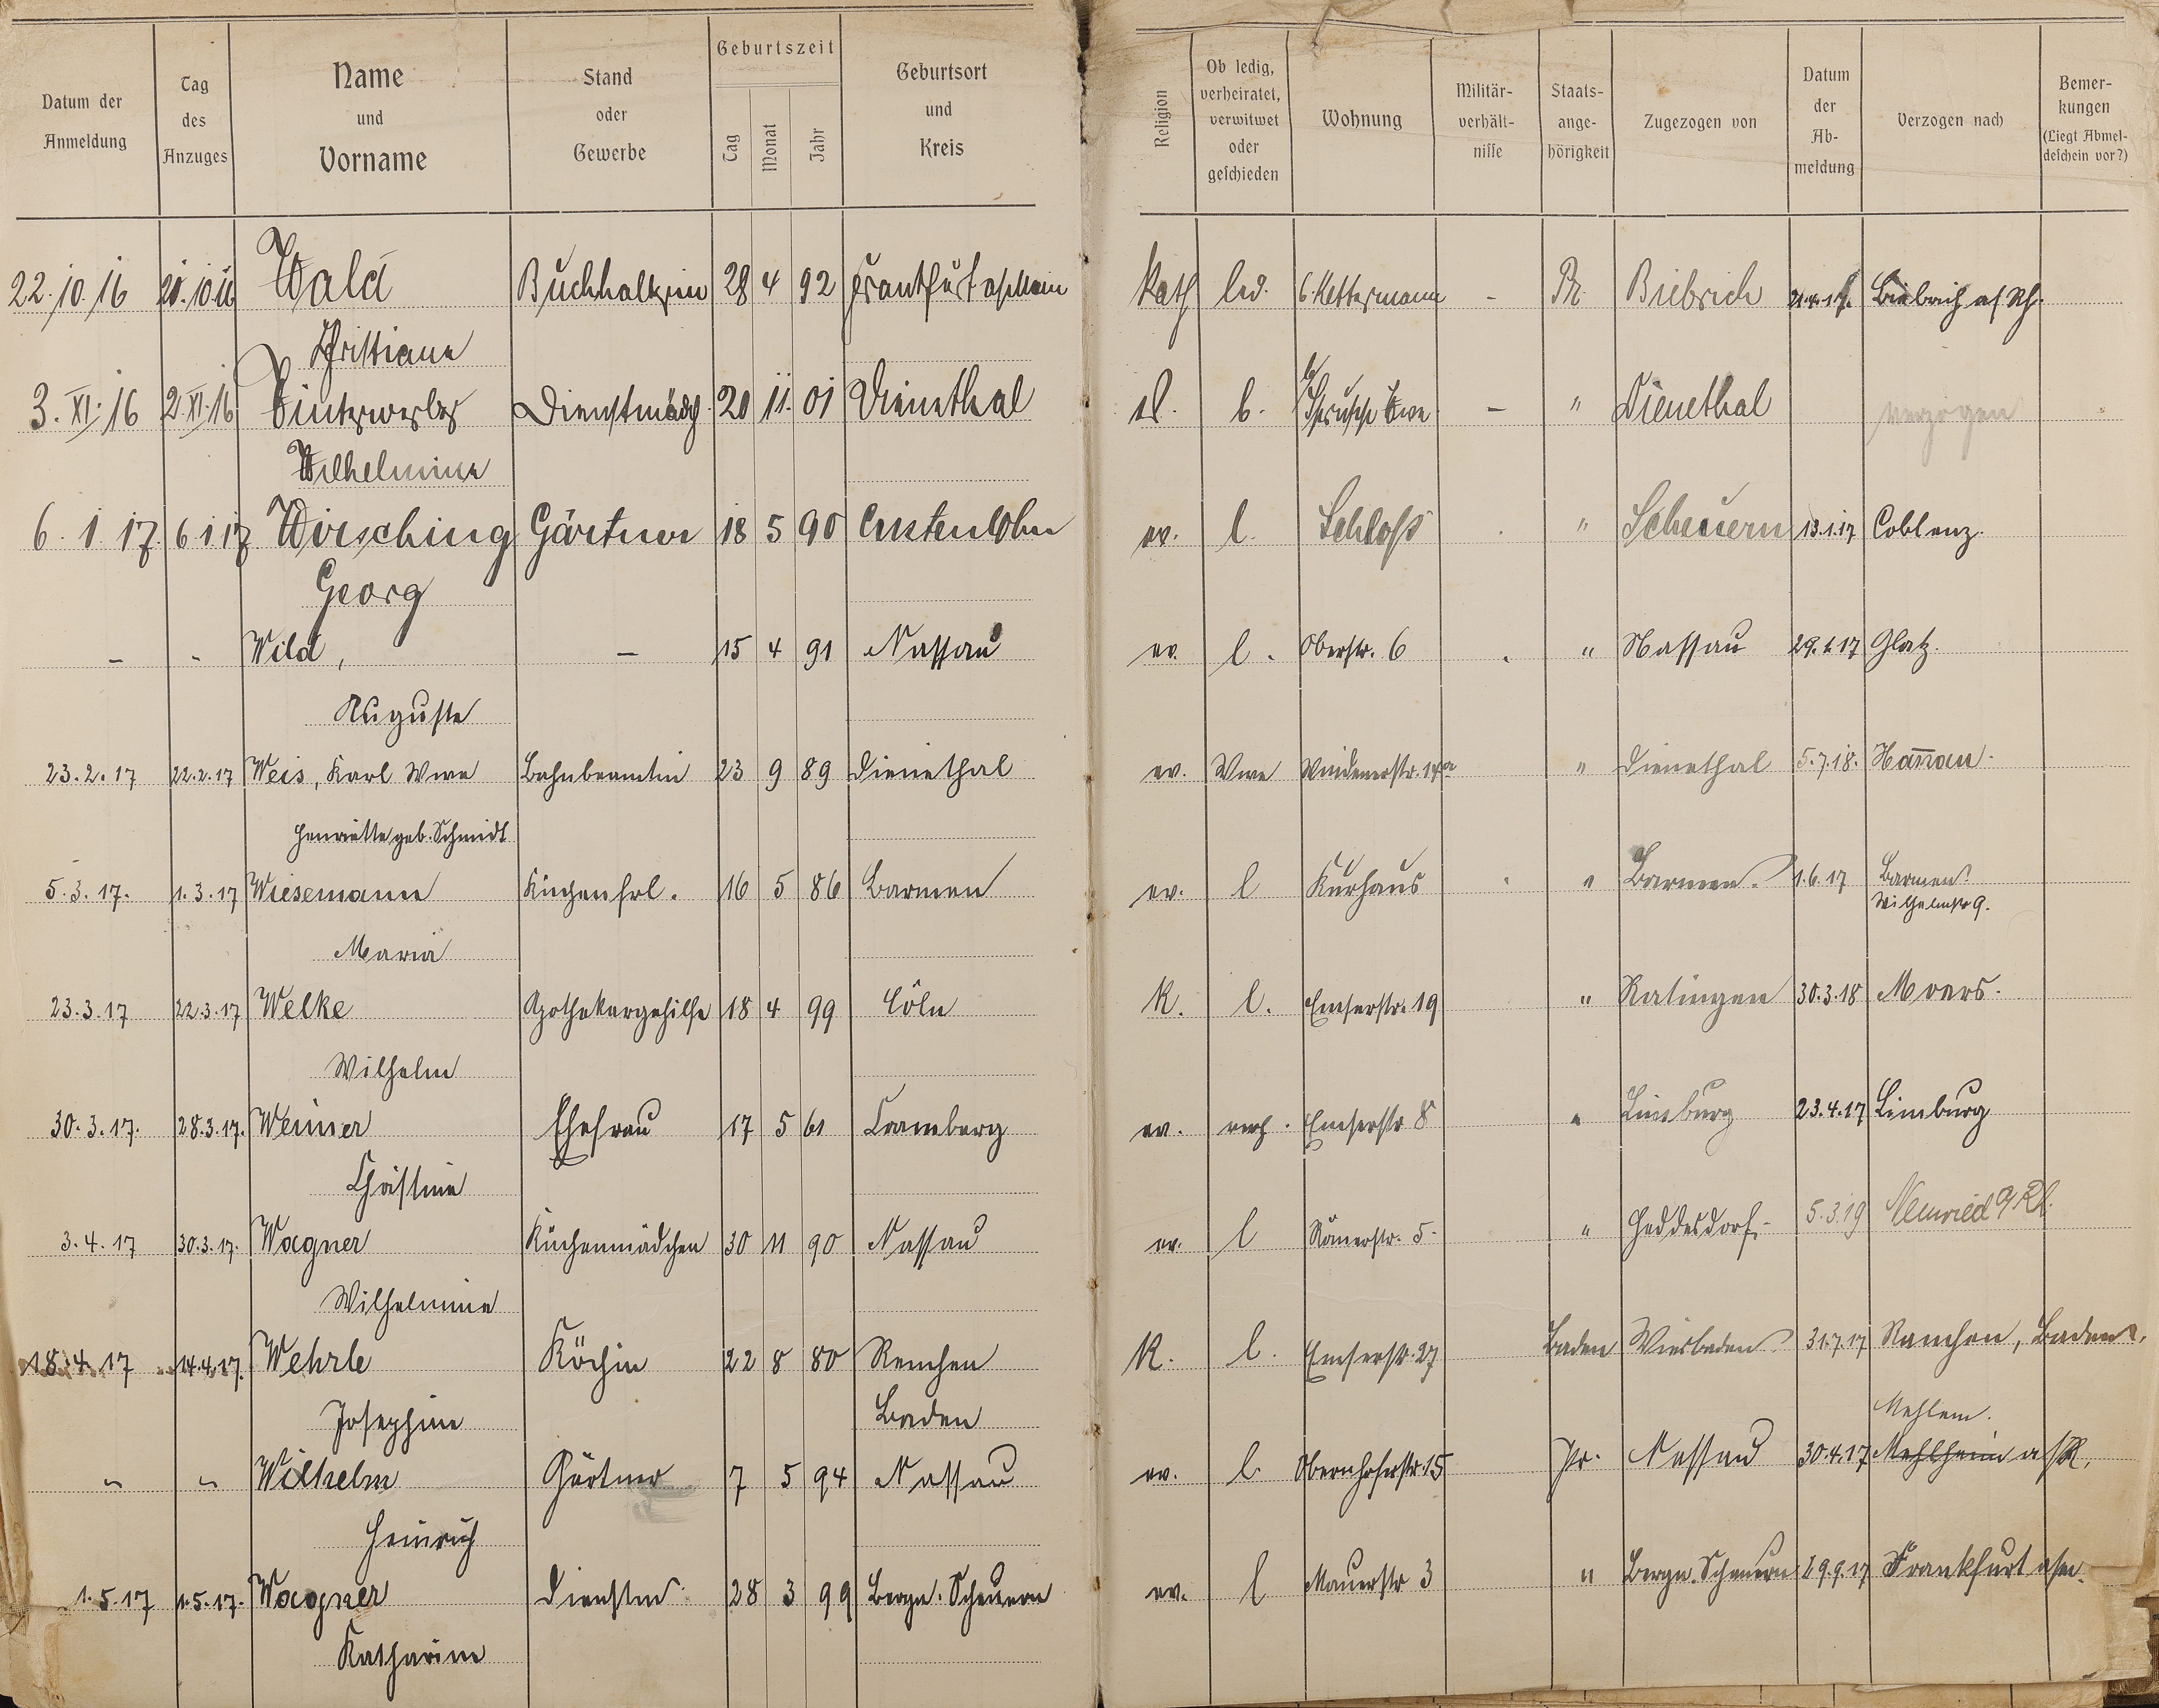 Datum der Anmeldung
Tag des Anzuges
Name und Vorname
Stand oder Gewerbe
Geburtszeit
Tag
Monat
Jahr
Geburtsort und Kreis
Religion
Ob ledig, verheiratet, verwitwet oder geschieden
Wohnung
Militär-verhält-nisse
Staats-ange-hörigkeit
Zugezogen von
Datum der Ab-meldung
Verzogen nach
Bemer-kungen (Liegt Abmel-deschein vor?)
22.10.16 20.10.16 Wald Buchhalterin 28 4 92 Frankfurt a/Main Kath led. b Kettermann - Pr. Biebrich 21.4.17. Biebrich a/Rh.
Christiane
3.XI.16 2.XI.16 Winterwerber Dienstmädch. 20 11. 01 Dienethal l. b. Wwe - " Dienethal verzogen
Wilhelmine
6.1.17. 6.1.17 Wirsching Gärtner 18 5 90 ev. l. Schloß " Scheuern 13.1.17 Coblenz.
Georg
- - Wild, - 15 4 91 Nassau ev. l. Oberstr. 6 " Nassau 29.1.17 Glatz.
Auguste
23.2.17 22.2.17 Weis, Karl Wwe Bahnbeamtin 23 9 89 Dienethal ev. Wwe Windenerstr. 14a " Dienethal 5.7.18. Hanau.
Henriette geb. Schmidt
5.3.17. 1.3.17 Wiesemann Küchenfrl. 16 5 86 Barmen ev. l Kurhaus " Barmen. 1.6.17 Barmen
Wilhelmstr 9.
Maria
23.3.17 22.3.17 Welke Apothekergehilfe 18 4 99 Cöln K. l. Emserstr. 19 " Ratingen 30.3.18 Moers.
Wilhelm
30.3.17. 28.3.17. Weimer Ehefrau 17 5 61 Cramberg ev. verh. Emserstr 8 " Limburg 23.4.17 Limburg
Christine
3.4.17 30.3.17. Wagner Küchenmädchen 30 11 90 Nassau ev. l Römerstr. 5. " Heddesdorf. 5.3.19 Neuwied a/Rh.
Wilhelmine
18.4.17 14.4.17. Wehrle Köchin 22 8 80 Renchen K. l. Emserstr. 27 Baden Wiesbaden 31.7.17 Renchen, Baden.
Josephine Baden
Mehlem.
" " Wilhelm Gärtner 7 5 94 Nassau ev. l. Obernhoferstr. 15 Pr. Nassau 30.4.17 Mehlheim a/R.
Heinrich
1.5.17 1.5.17. Wagner Dienstm. 28 3 99 Bergn. Scheuern ev. l Mauerstr 3 " Bergn. Scheuern 29.9.17 Frankfurt a/m.
Katharine